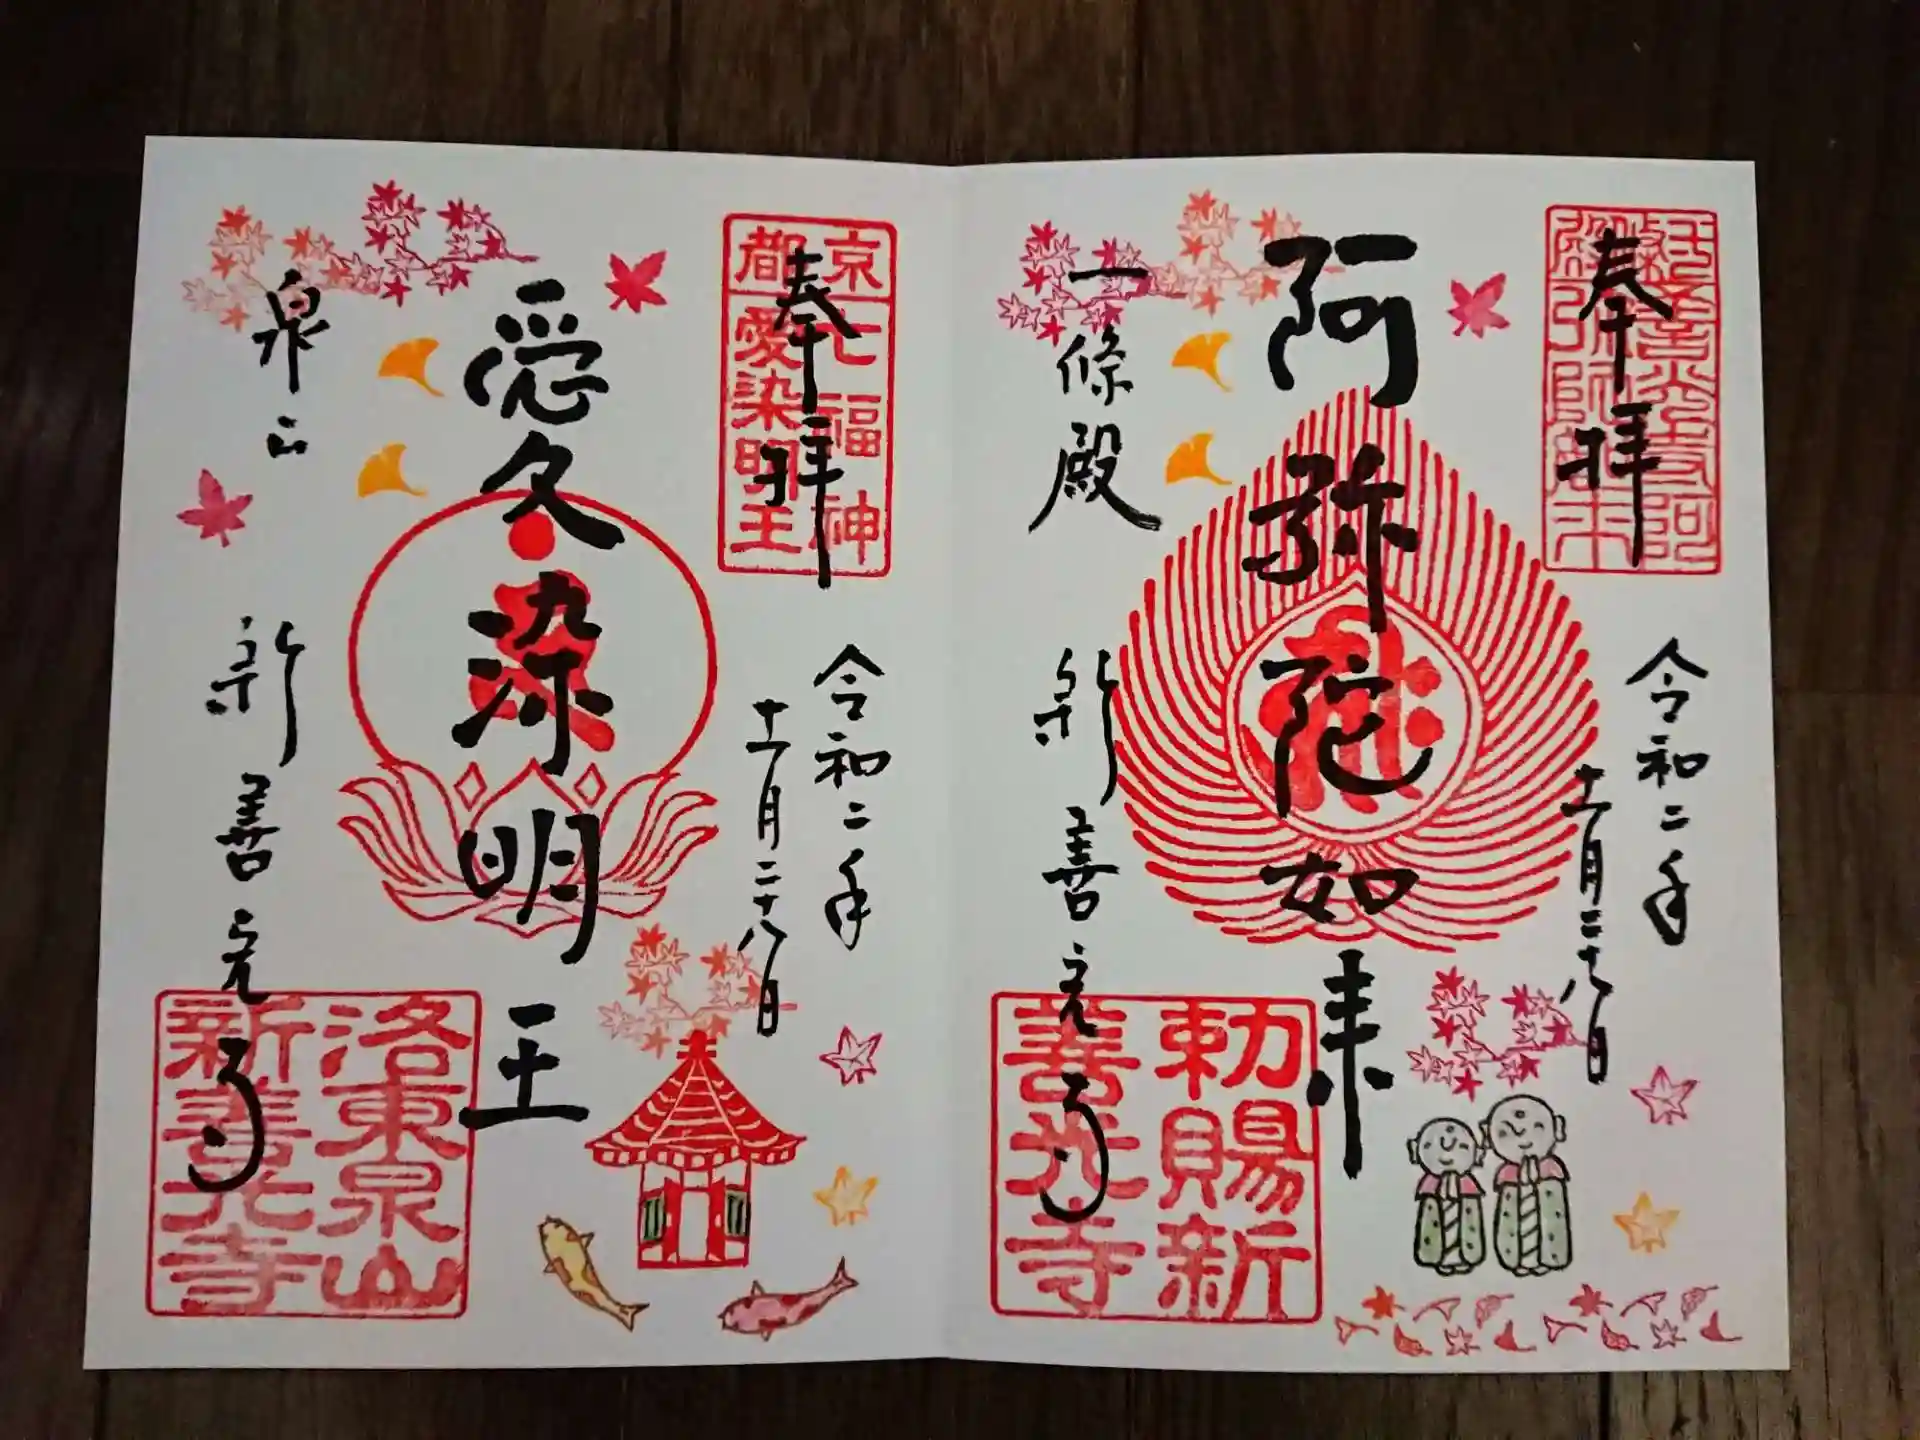 奉拝
令和二年
十一月二十八日
阿弥陀如来
一條殿
新善光寺
勅賜新
善光寺
奉拝
京七福神
都愛染明王
令和二年
十一月二十八日
愛染明王
泉山
新善光寺
洛東泉山
新善光寺